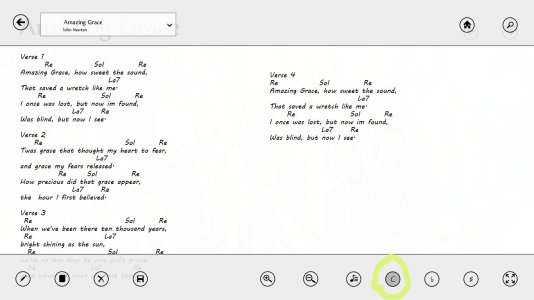 Amazing Grace
Amazing Grace
John Newton
Verse 1
Re Sol Re
Amazing Grace, how sweet the sound,
La7
That saved a wretch like me.
Re Sol Re
I once was lost, but now im found,
La7 Re
Was blind, but now I see.
Verse 2
Re Sol Re
Twas grace that thought my heart to fear,
La7
and grace my fears released.
Re Sol Re
How precious did that grace appear,
La7 Re
the hour I first believed.
Verse 3
Re Sol Re
When we've been there ten thousand years,
Re La7
bright shining as the sun,
Re Sol Re
we've no less days to sing god's praise
Re La7 Re
Verse 4
Re Sol Re
Amazing Grace, how sweet the sound,
La7
That saved a wretch like me.
Re Sol Re
I once was lost, but now im found,
La7 Re
Was blind, but now I see.
C